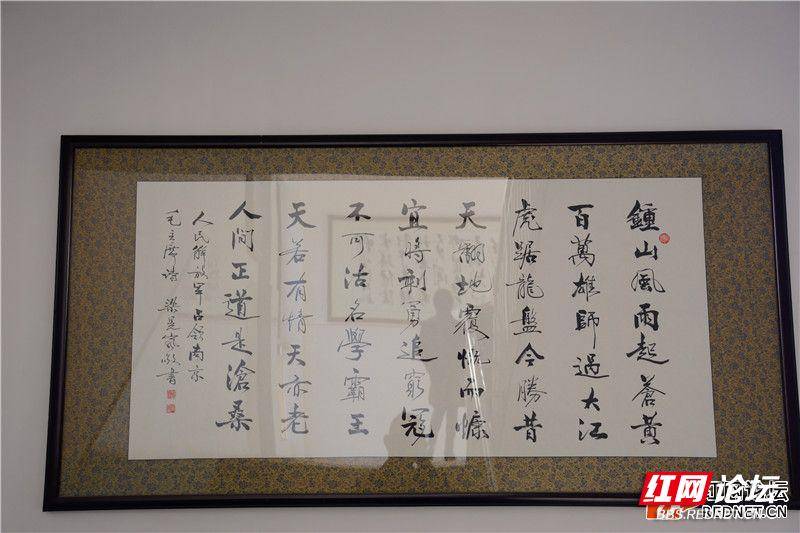 鍾山風雨起蒼黃
百萬雄師過大江
虎踞龍盤今勝昔
天翻地覆慨而慷
宜將剩勇追窮寇
不可沽名學霸王
天若有情天亦老
人間正道是滄桑
人民解放軍占領南京
毛主席詩 梁 敬書
红网论坛
BBS.REDNET.CN
REDNET.CN